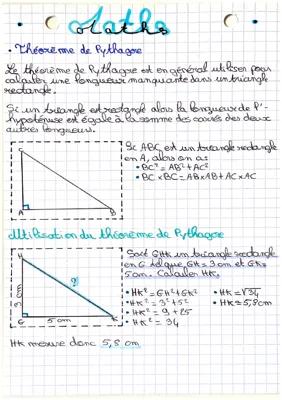 Maths
• Théorème de Pythagore
Le théorème de Pythagore est en général utiliser pour
calculer une longueur manquante dans un triangle
rectangle.
Si un triangle est rectangle alors la longueur de l'-
hypoténuse est égale à la somme des carrés des deux
autres longueurs.
C
A
B
Si ABC est un triangle rectangle
en A, alors on a:
• BC² = AB² + AC²
• BC × BC = AB × AB + AC × AC
Utilisation du théorème de Pythagore
H
3 cm
?
G
5 cm
K
Soit GHK un triangle rectangle
en G tel que, GH = 3 cm et GK =
5 cm. Calculer HK.
• HK² = GH² + GK²
• HK² = 3² + 5²
• HK² = 9 + 25
• HK² = 34
• HK = √34
• HK ≈ 5,8 cm
HK mesure donc 5,8 cm